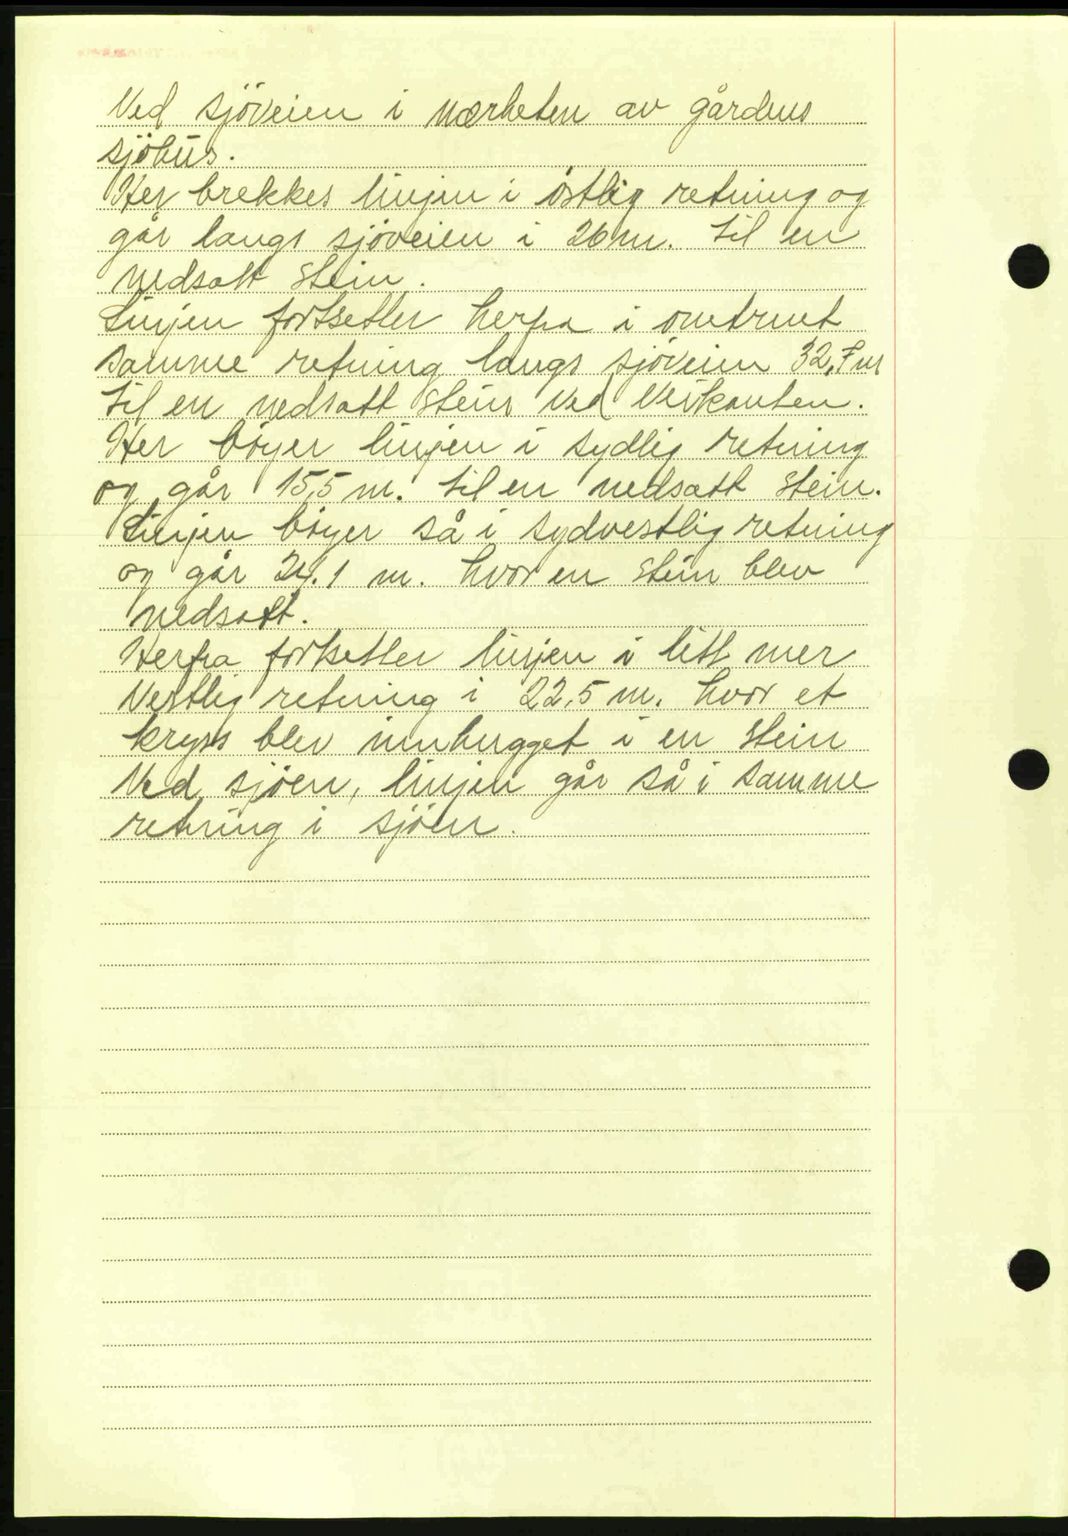 Ved sjöveien i nærheten av gårdens
sjöhus.
Her brekkes linjen i östlig retning og
går langs sjöveien i 26 m. til en
nedsatt stein.
Linjen fortsetter herfra i omtrent
samme retning langs sjöveien 32,7 m
til en nedsatt stein ved veikanten.
Her böyer linjen i sydlig retning
og går 15,5 m. til en nedsatt stein.
Linjen böyer så i sydvestlig retning
og går 24.1 m. hvor en stein blev
nedsatt.
Herfra fortsetter linjen i litt mer
vestlig retning i 22,5 m. hvor et
kryss blev innhugget i en stein
ved sjöen, linjen går så i samme
retning i sjöen.